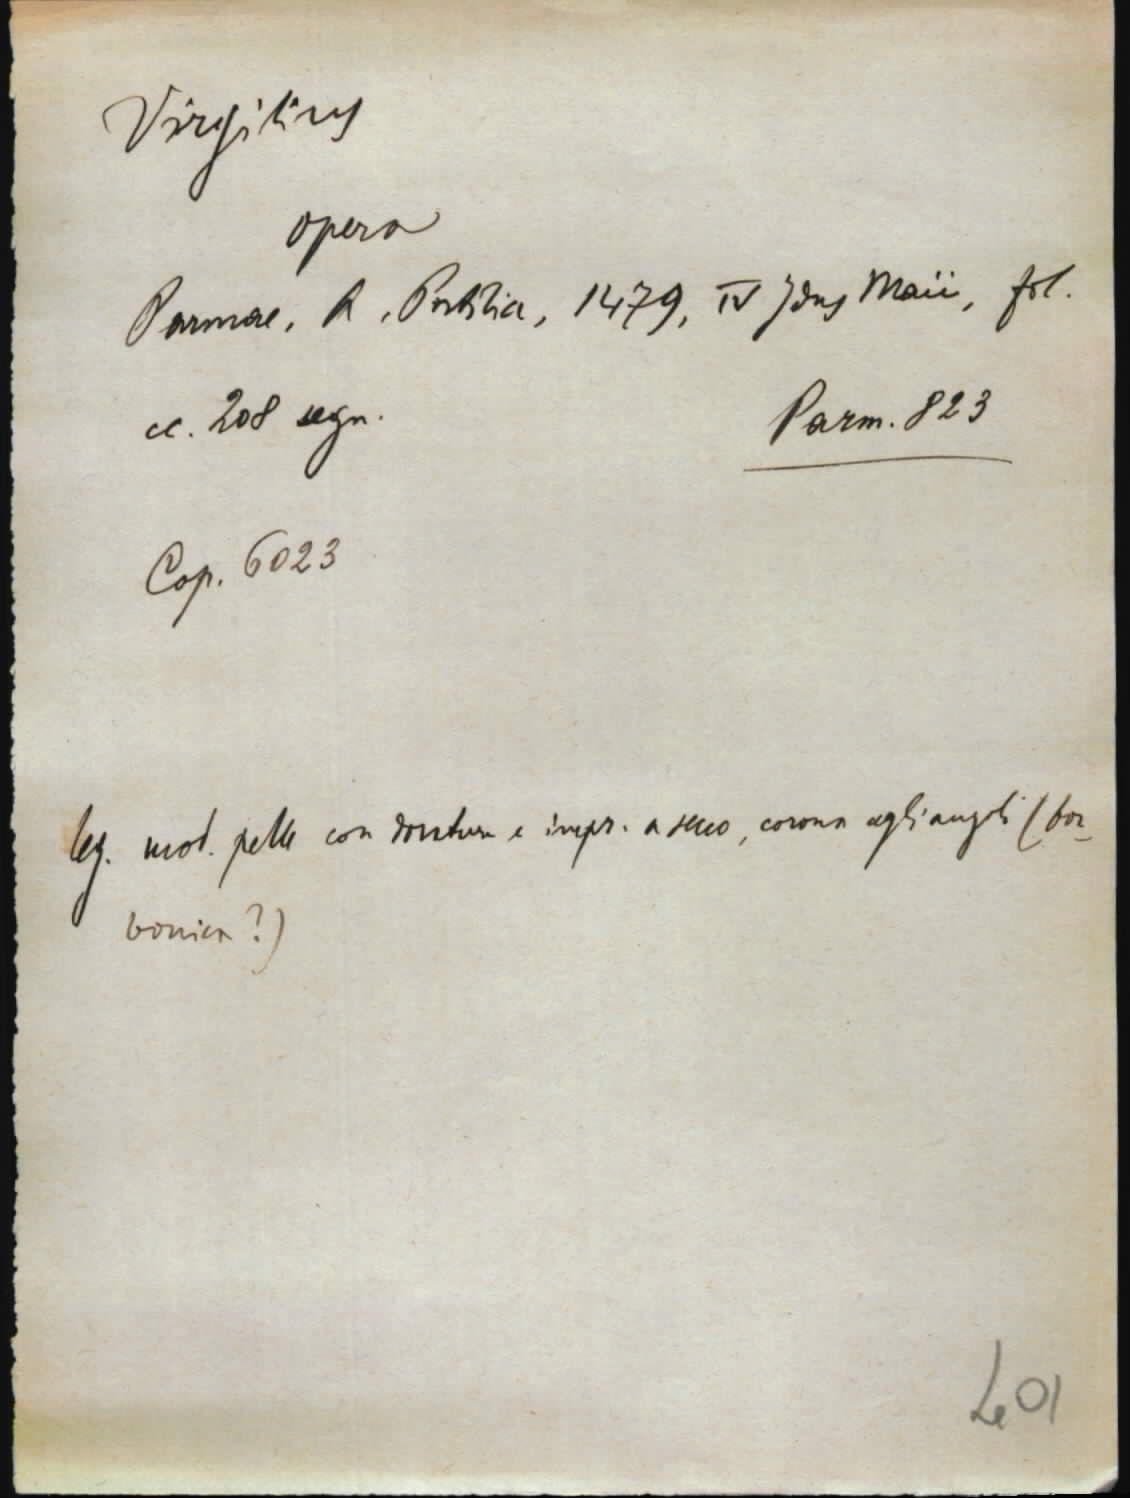 Virgilius
opera
Parmae, A. Portilia, 1479, IV Idus Maii, fol.
cc. 208 segn.
Parm. 823
Cop. 6023
leg. mod. pelle con dorature e impr. a secco, corona agli angoli (bor-
bonica?)